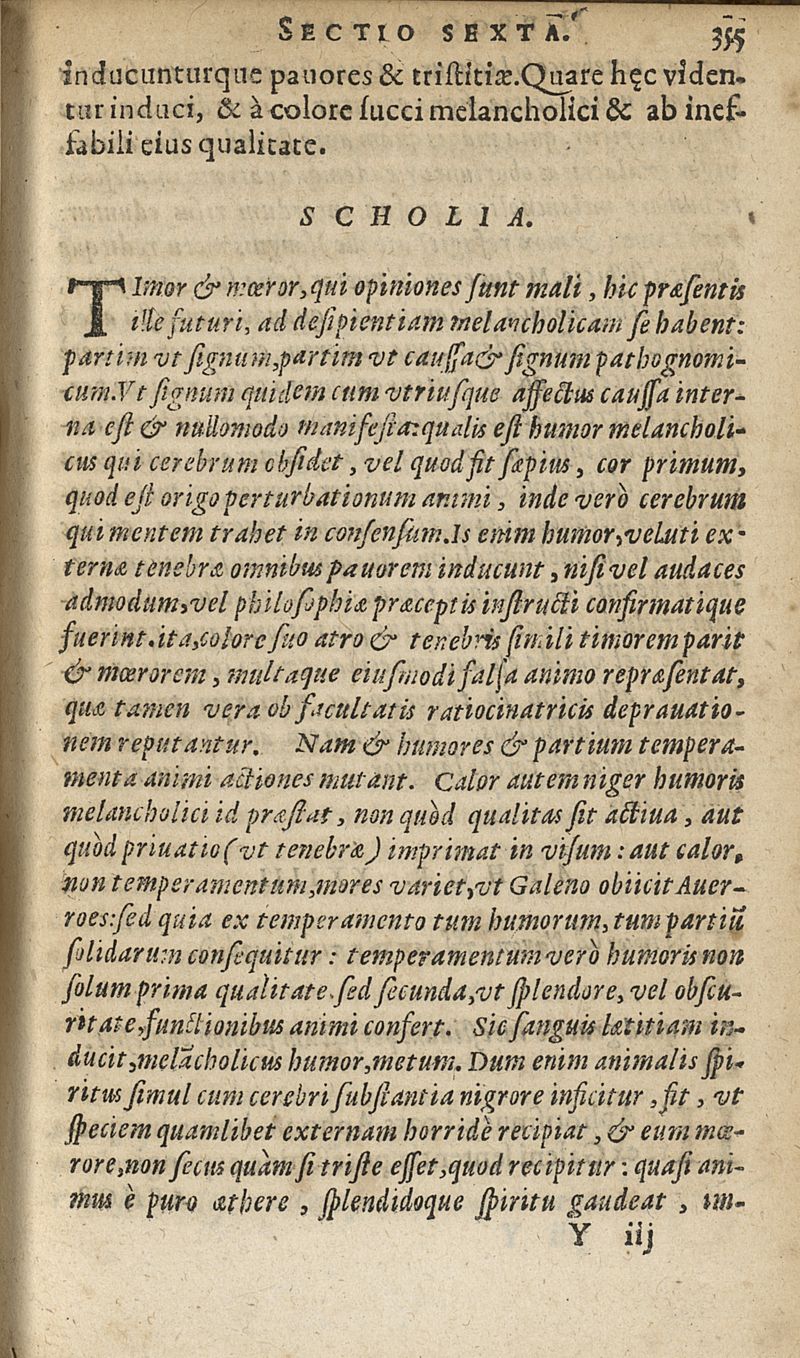 SECTIO SEXTA. 355
inducunturque pauores & tristitiæ.Quare hęc viden-
tur induci, & à colore succi melancholici & ab inef-
fabili eius qualitate.
SCHOLIA.
TImor & mœror,qui opiniones sunt mali , hic præsentis
ille futuri, ad desipientiam melancholicam se habent:
partim vt signum,partim vt caussa & signum pathognomi-
cum.Vt signum quidem cum vtriusque affectus caussa inter-
na est & nullomodo manifesta:qualis est humor melancholi-
cus qui cerebrum obsidet , vel quod fit sæpius , cor primum,
quod est origo perturbationum animi , inde verò cerebrum
qui mentem trahet in consensum.Is enim humor,veluti ex-
ternæ tenebræ omnibus pauorem inducunt , nisi vel audaces
admodum,vel philosophiæ præceptis instructi confirmatique
fuerint.ita,colore suo atro & tenebris simili timorem parit
& mœrorem , multaque eiusmodi falsa animo repræsentat,
quæ tamen vera ob facultatis ratiocinatricis deprauatio-
nem reputantur. Nam & humores & partium tempera-
menta animi actiones mutant. Calor autem niger humoris
melancholici id præstat , non quòd qualitas sit actiua , aut
quòd priuatio (vt tenebræ) imprimat in visum : aut calor,
non temperamentum,mores variet,vt Galeno obiicit Auer-
roes:sed quia ex temperamento tum humorum, tum partiū
solidarum consequitur : temperamentum verò humoris non
solum prima qualitate.sed secunda,vt splendore, vel obscu-
ritate,functionibus animi confert. Sic sanguis lætitiam in-
ducit,melācholicus humor,metum. Dum enim animalis spi-
ritus simul cum cerebri substantia nigrore inficitur , fit , vt
speciem quamlibet externam horridè recipiat , & eum mœ-
rore,non secus quàm si triste esset,quod recipitur : quasi ani-
mus è puro æthere , splendidoque spiritu gaudeat , im-
Y iij